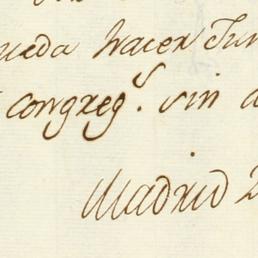 ueda hacer Jun
congreg.s sin a
Madrid 2